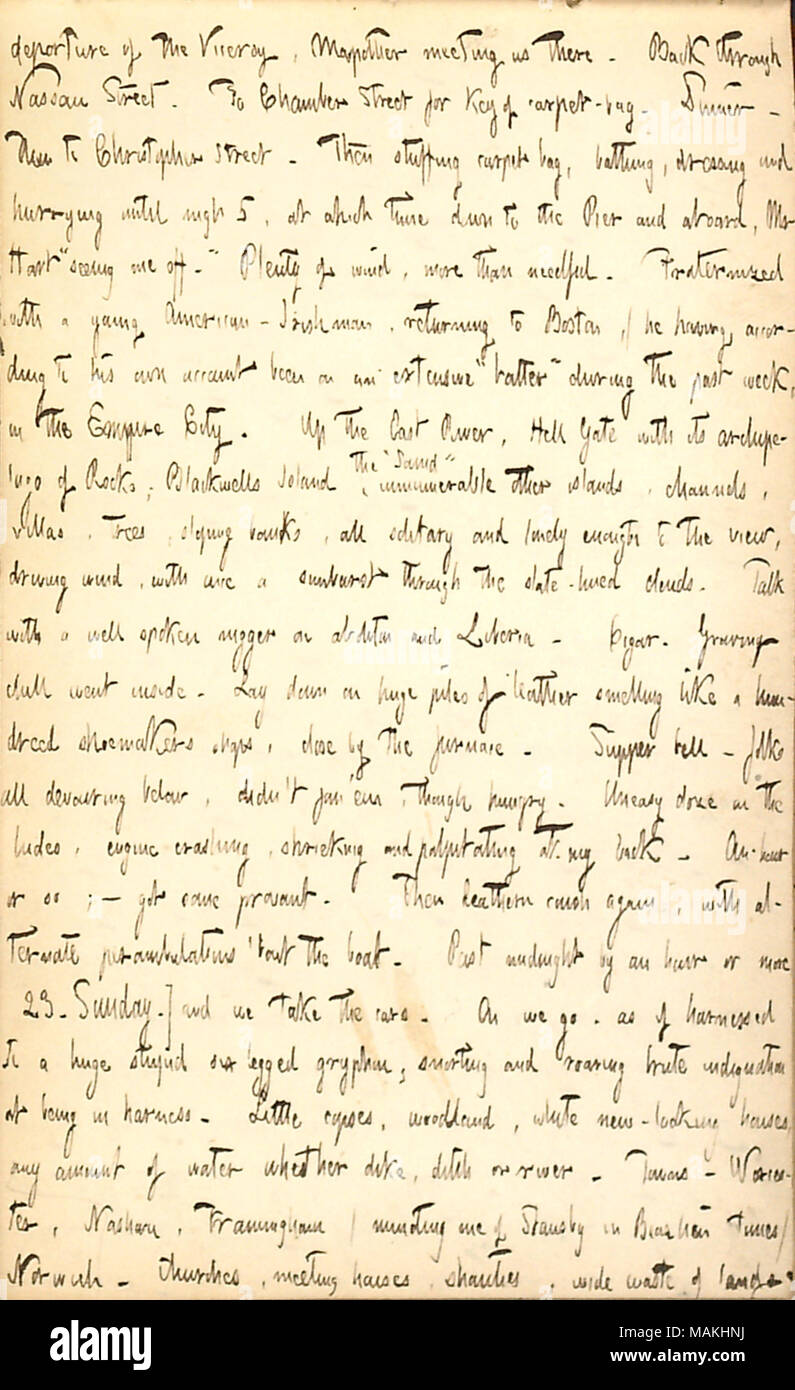 departure of the Viceroy, Mapother meeting us there. Back through
Nassau Street. To Chamber Street for key of carpet-bag. Dinner.
Then to Christopher Street. Then stuffing carpet bag, bathing, dressing and
hurrying until nigh 5, at which time down to the Pier and aboard, Mr
Hart "seeing me off." Plenty of wind, more than needful. Fraternized
with a young American-Irishman, returning to Boston, / he having, accor-
ding to his own account been on an extensive "batter" during the past week,
in the Empire City. Up the East River, Hell Gate with its archipe-
lago of Rocks, Blackwells Island, the "Sound" innumerable other islands, channels,
villas, trees, sloping banks, all solitary and lonely enough to the view,
driving wind, with once a sunburst through the slate-hued clouds. Talk
with a well spoken nigger on abolition and Liberia. Cigar. Growing
chill went inside. Lay down on huge piles of leather smelling like a hun-
dred shoemakers shops, close by the furnace. Supper bell - folks
all devouring below, didn't join 'em, though hungry. Uneasy doze on the
hides, engine crashing, shrieking and palpitating at my back. An hour
or so ; - got some provant. Then leathern couch again, with al-
ternate perambulations 'bout the boat. Past midnight by an hour or more
23. Sunday.] and we take the cars. On we go, as if harnessed
to a huge stupid six legged gryphon, snorting and roaring brute indignation
at being in harness. Little copses, woodland, white new-looking houses,
any amount of water whether dike, ditch or river. Towns - Worces-
ter, Nashau, Framingham / minding me of Stansby in Brazilien times /
Norwich. Churches, meeting houses, shanties, wide waste of lands
alamy
Image ID: MAKHNJ
www.alamy.com